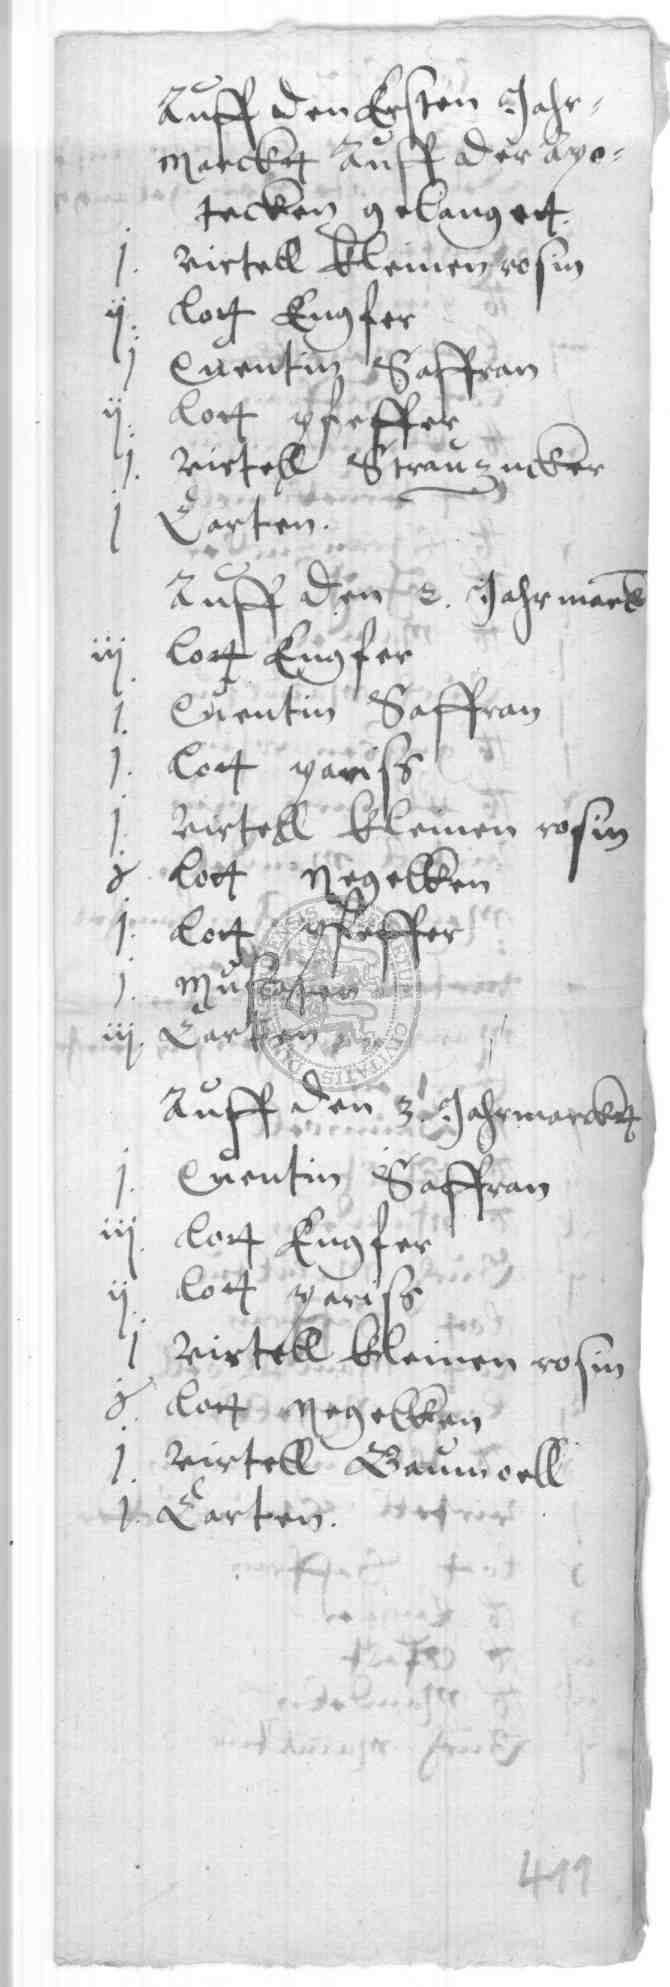 Auff den Ersten Jahr-
marckt Auff der Apo-
tecken gelanget.
j. virtell kleinen rosin
ij. lott Engfer
j Quentin Saffran
ij. lott pfeffer
j. virtell Strauzucker
j Carten.
Auff den 2. Jahrmarck
iij lott Engfer
j. Quentin Saffran
j. lott pariss
j. virtell kleinen rosin
lott Negelken
j. lott pfeffer
j. Muscaten
iij. Carten
Auff den 3. Jahrmarckt
j. Quentin Saffran
iij. lott Engfer
ij lott pariss
j virtell kleinen rosin
lott Negelken
j. virtell Baumoell
j. Carten.
411